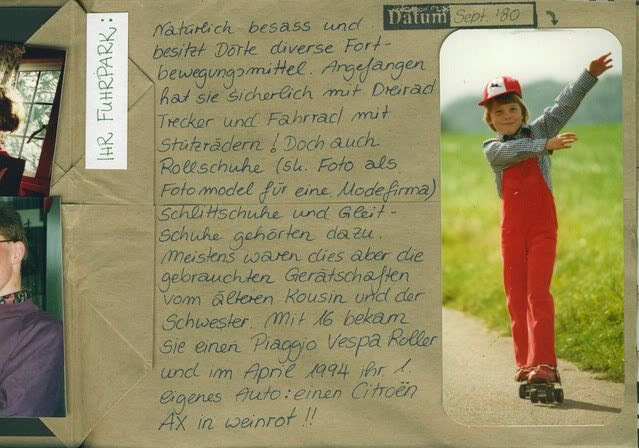 IHR FUHRPARK:
Datum Sept. '80
Natürlich besass und
besitzt Dörte diverse Fort-
bewegungsmittel. Angefangen
hat sie sicherlich mit Dreirad
Trecker und Fahrrad mit
Stützrädern! Doch auch
Rollschuhe (sh. Foto als
Fotomodel für eine Modefirma)
Schlittschuhe und Gleit-
schuhe gehörten dazu.
Meistens waren dies aber die
gebrauchten Gerätschaften
vom älteren Kousin und der
Schwester. Mit 16 bekam
sie einen Piaggio Vespa Roller
und im April 1994 ihr 1.
eigenes Auto: einen Citroën
AX in weinrot!!